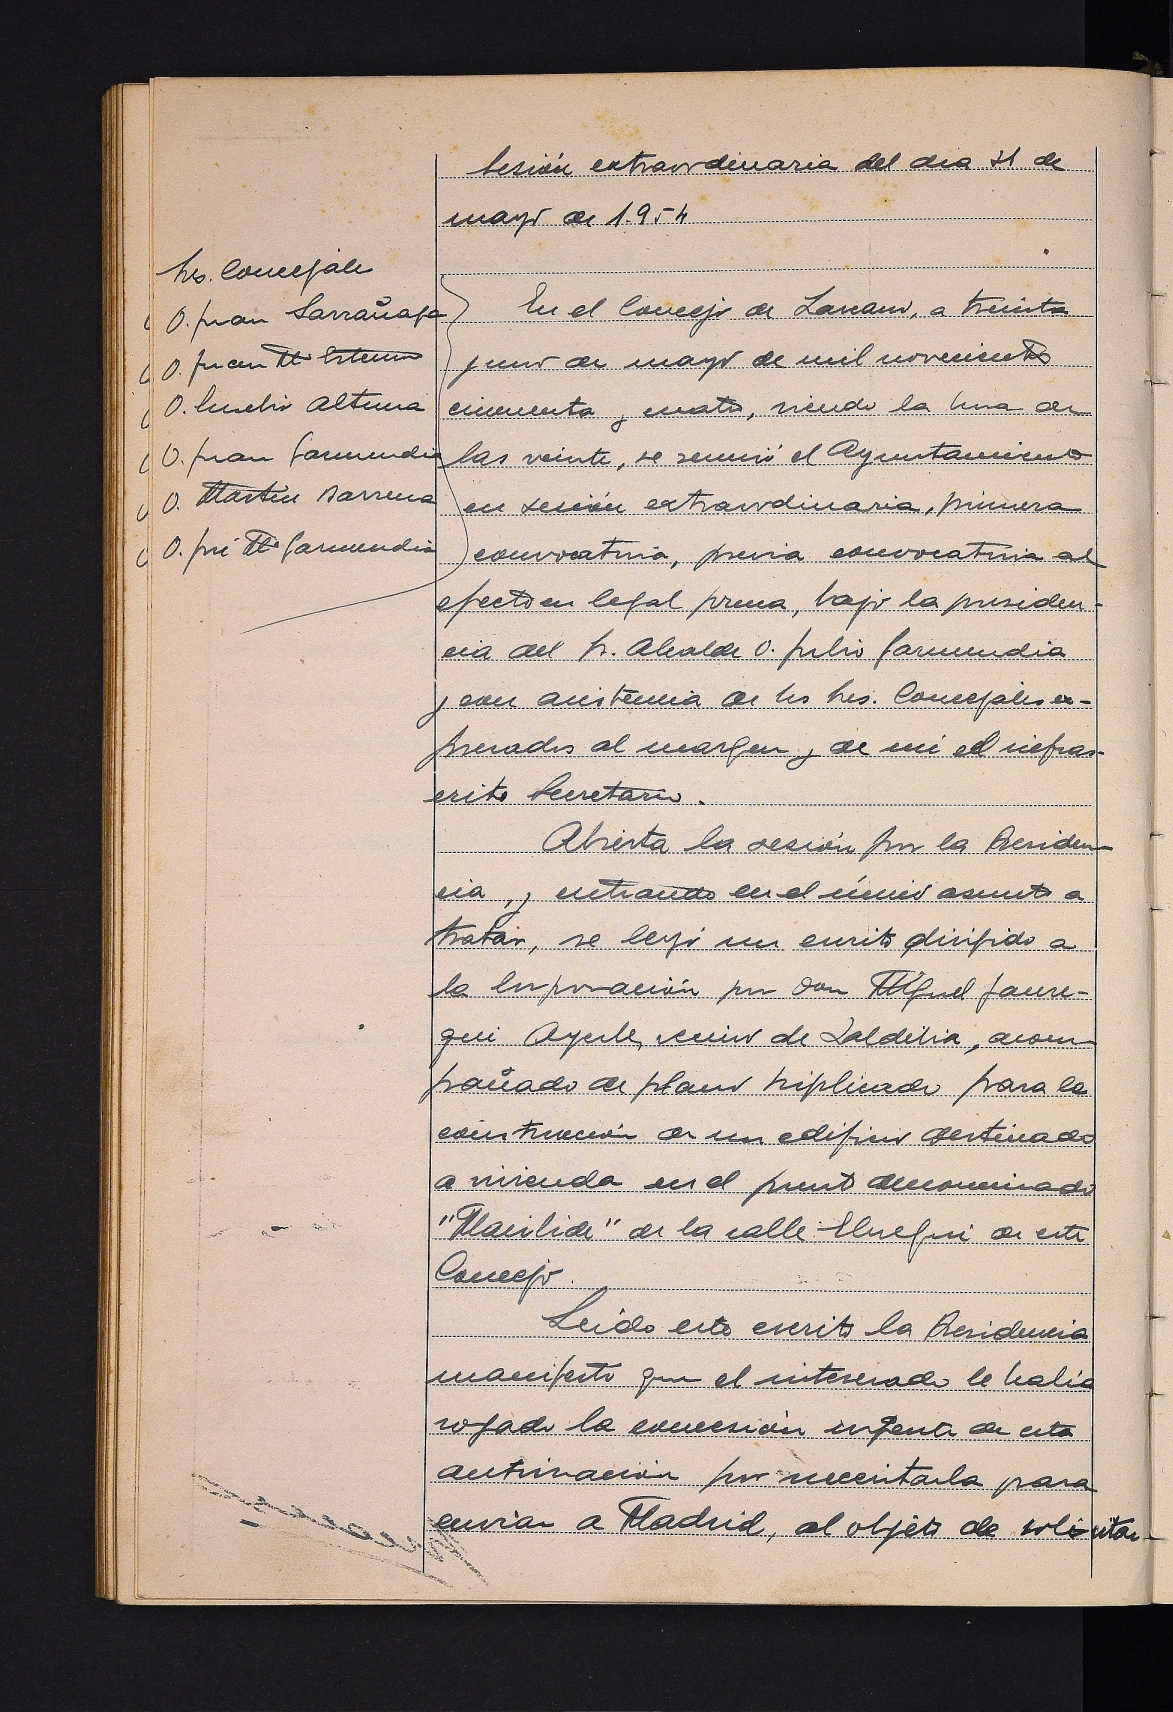 Sesión extraordinaria del dia 31 de
mayo de 1.954
Sres. Concejales
D. Juan Larrañaga
D. Juan Mª Estensoro
D. Eusebio Altuna
D. Juan Garmendia
D. Martin Barrena
D. José Mª Garmendia
En el Concejo de Lazcano, a treinta
y uno de mayo de mil novecientos
cincuenta y cuatro, siendo la hora de
las veinte, se reunió el Ayuntamiento
en sesión extraordinaria, primera
convocatoria, previa convocatoria al
efecto en legal forma, bajo la presiden-
cia del Sr. Alcalde D. Julio Garmendia
y con asistencia de los Sres. Concejales ex-
presados al margen y de mi el infras-
crito Secretario.
Abierta la sesión por la Presiden-
cia, y entrando en el único asunto a
tratar, se leyó un escrito dirigido a
la Corporación por don Miguel Jaure-
gui Ayerbe, vecino de Zaldibia, acom-
pañado de plano triplicado para la
construcción de un edificio destinado
a vivienda en el punto denominado
de la calle Elosegui de este
Concejo.
Leido este escrito la Presidencia
manifestó que el interesado le habia
rogado la concesión urgente de esta
autorización por necesitarla para
enviar a Madrid, al objeto de solicitar